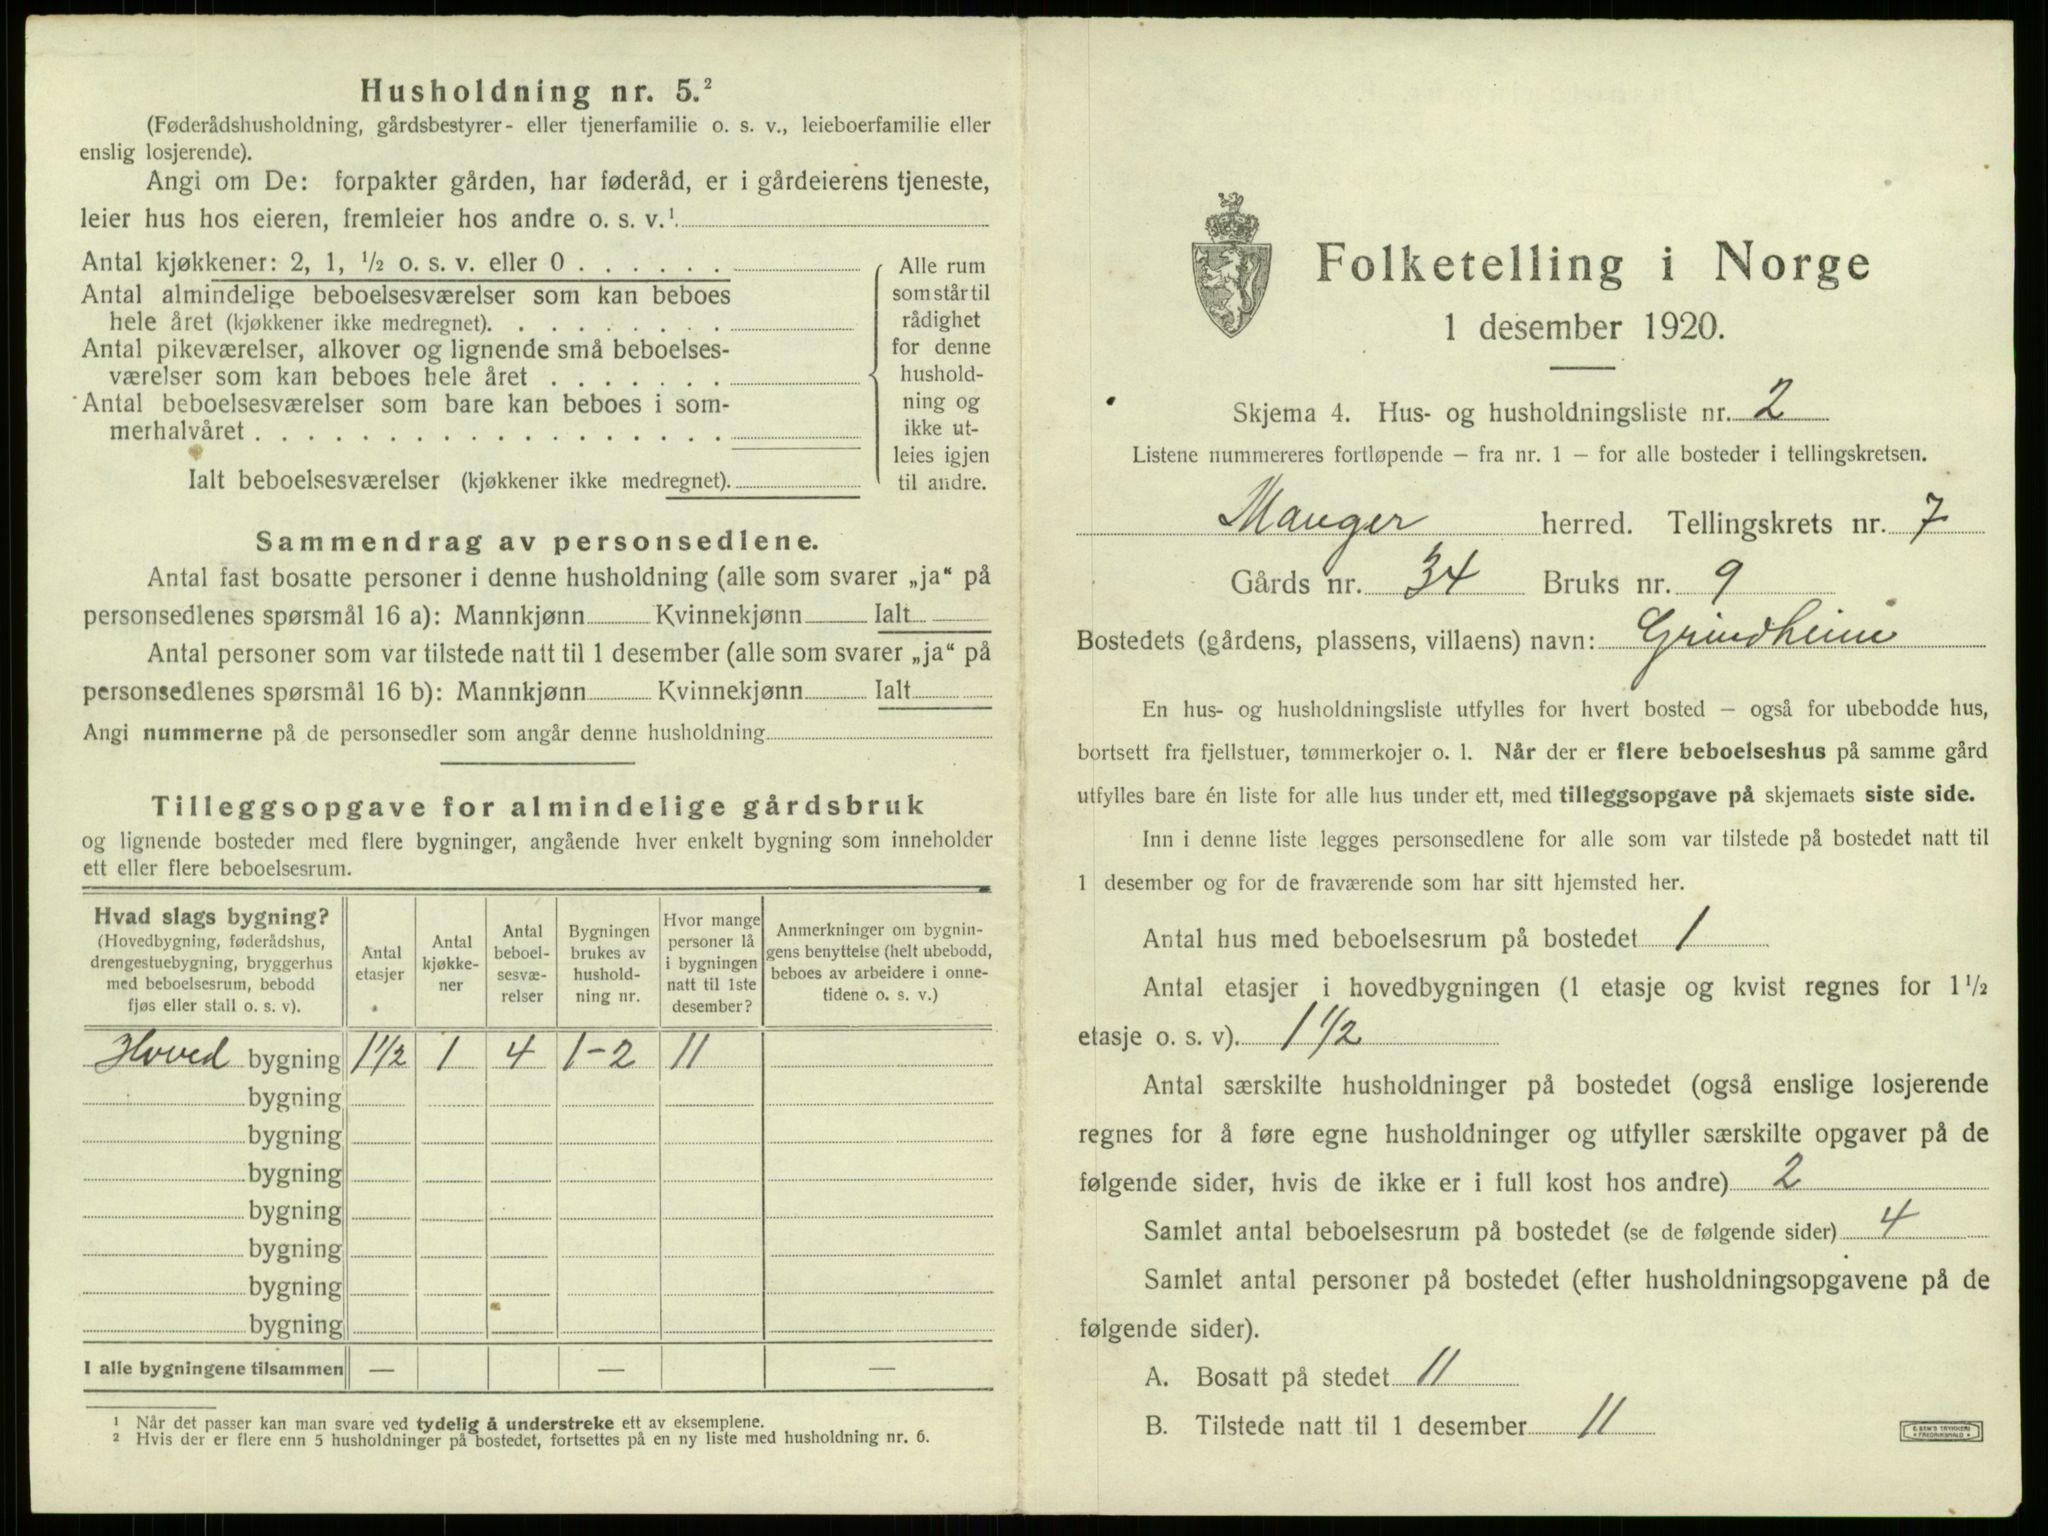 Husholdning nr. 5.²
(Føderådshusholdning, gårdsbestyrer- eller tjenerfamilie o. s. v., leieboerfamilie eller
enslig losjerende).
Angi om De: forpakter gården, har føderåd, er i gårdeierens tjeneste,
leier hus hos eieren, fremleier hos andre o. s. v.¹
Antal kjøkkener: 2, 1, ½ o. s. v. eller 0 . . . . . .
Antal almindelige beboelsesværelser som kan beboes
hele året (kjøkkener ikke medregnet). . . . . . . . .
Antal pikeværelser, alkover og lignende små beboelses-
værelser som kan beboes hele året . . . . . . .
Antal beboelsesværelser som bare kan beboes i som-
merhalvåret . . . . . . . . . . . . . . . . . .
Ialt beboelsesværelser (kjøkkener ikke medregnet).
Alle rum
som står til
rådighet
for denne
hushold-
ning og
ikke ut-
leies igjen
til andre.
Sammendrag av personsedlene.
Antal fast bosatte personer i denne husholdning (alle som svarer „ja“ på
personsedlenes spørsmål 16 a): Mannkjønn Kvinnekjønn Ialt
Antal personer som var tilstede natt til 1 desember (alle som svarer „ja“ på
personsedlenes spørsmål 16 b): Mannkjønn Kvinnekjønn Ialt
Angi nummerne på de personsedler som angår denne husholdning
Tilleggsopgave for almindelige gårdsbruk
og lignende bosteder med flere bygninger, angående hver enkelt bygning som inneholder
ett eller flere beboelsesrum.
Hvad slags bygning?
(Hovedbygning, føderådshus,
drengestuebygning, bryggerhus
med beboelsesrum, bebodd
fjøs eller stall o. s. v).
Antal
etasjer
Antal
kjøkke-
ner
Antal
beboel-
sesvæ-
relser
Bygningen
brukes av
hushold-
ning nr.
Hvor mange
personer lå
i bygningen
natt til 1ste
desember?
Anmerkninger om bygnin-
gens benyttelse (helt ubebodd,
beboes av arbeidere i onne-
tidene o. s. v.)
Hoved bygning 1½ 1 4 1-2 11
bygning
bygning
bygning
bygning
bygning
bygning
bygning
I alle bygningene tilsammen — — —
¹ Når det passer kan man svare ved tydelig å understreke ett av eksemplene.
² Hvis der er flere enn 5 husholdninger på bostedet, fortsettes på en ny liste med husholdning nr. 6.
Folketelling i Norge
1 desember 1920.
Skjema 4. Hus- og husholdningsliste nr. 2
Listene nummereres fortløpende — fra nr. 1 — for alle bosteder i tellingskretsen.
Manger herred. Tellingskrets nr. 7
Gårds nr. 34 Bruks nr. 9
Bostedets (gårdens, plassens, villaens) navn: Grindheim
En hus- og husholdningsliste utfylles for hvert bosted — også for ubebodde hus,
bortsett fra fjellstuer, tømmerkojer o. l. Når der er flere beboelseshus på samme gård
utfylles bare én liste for alle hus under ett, med tilleggsopgave på skjemaets siste side.
Inn i denne liste legges personsedlene for alle som var tilstede på bostedet natt til
1 desember og for de fraværende som har sitt hjemsted her.
Antal hus med beboelsesrum på bostedet 1
Antal etasjer i hovedbygningen (1 etasje og kvist regnes for 1½
etasje o. s. v). 1½
Antal særskilte husholdninger på bostedet (også enslige losjerende
regnes for å føre egne husholdninger og utfyller særskilte opgaver på de
følgende sider, hvis de ikke er i full kost hos andre) 2
Samlet antal beboelsesrum på bostedet (se de følgende sider) 4
Samlet antal personer på bostedet (efter husholdningsopgavene på de
følgende sider).
A. Bosatt på stedet 11
B. Tilstede natt til 1 desember 11